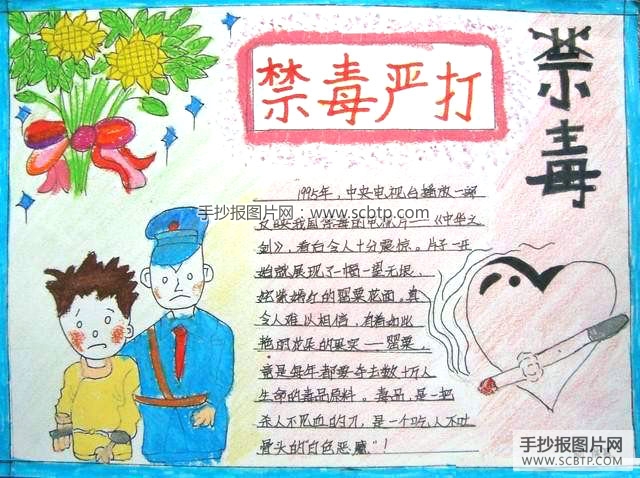 禁毒严打
禁毒
1995年，中央电视台播放一部
手抄报图片网：www.scbtp.com
反映我国禁毒的电视片——《中华之
剑》，看后令人十分震惊。片子一开
始就展现了一幅一望无垠、
姹紫嫣红的罂粟花面，真
令人难以相信，有着如此
艳丽花朵的果实——罂粟，
竟是每年都要夺去数十万人
生命的毒品原料。毒品，是一把
杀人不见血的刀，是一个吃人不吐
骨头的“白色恶魔”！
手抄报图片网
WWW.SCBTP.COM